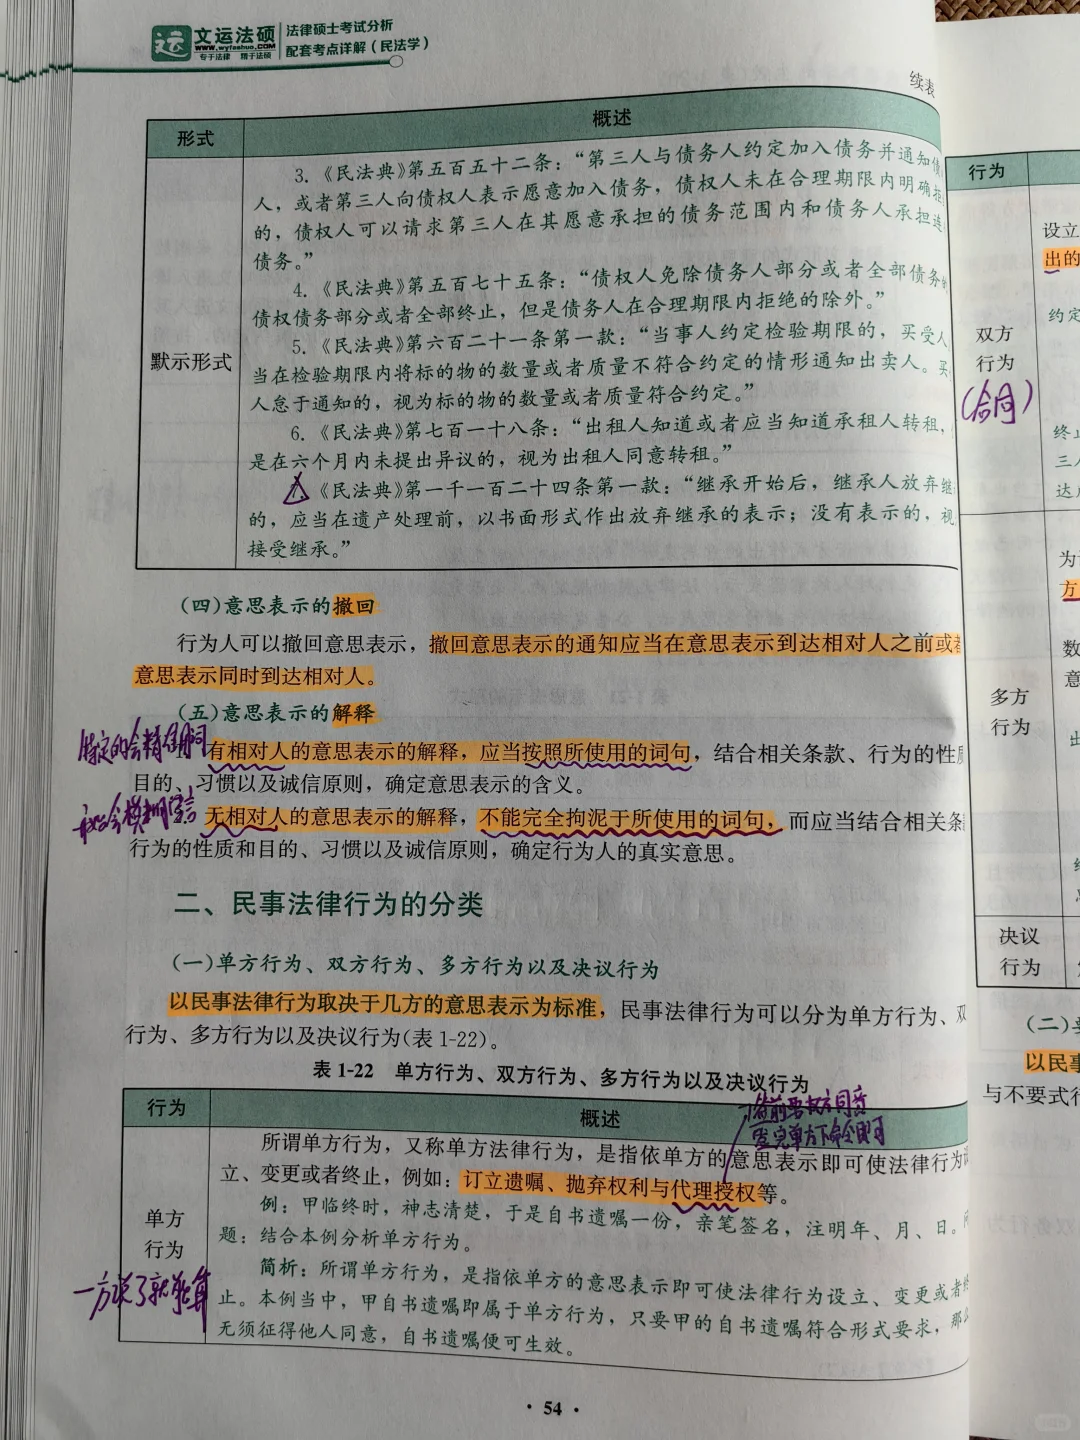 文运法硕
www.wyfashuo.com
专于法律 精于法硕
法律硕士考试分析
配套考点详解（民法学）
续表
形式
概述
默示形式
3. 《民法典》第五百五十二条：“第三人与债务人约定加入债务并通知债
人，或者第三人向债权人表示愿意加入债务，债权人未在合理期限内明确拒
的，债权人可以请求第三人在其愿意承担的债务范围内和债务人承担连
债务。”
4. 《民法典》第五百七十五条：“债权人免除债务人部分或者全部债务的
债权债务部分或者全部终止，但是债务人在合理期限内拒绝的除外。”
5. 《民法典》第六百二十一条第一款：“当事人约定检验期限的，买受人
当在检验期限内将标的物的数量或者质量不符合约定的情形通知出卖人。买
人怠于通知的，视为标的物的数量或者质量符合约定。”
6. 《民法典》第七百一十八条：“出租人知道或者应当知道承租人转租，
是在六个月内未提出异议的，视为出租人同意转租。”
《民法典》第一千一百二十四条第一款：“继承开始后，继承人放弃继
的，应当在遗产处理前，以书面形式作出放弃继承的表示；没有表示的，视
接受继承。”
（四）意思表示的撤回
行为人可以撤回意思表示，撤回意思表示的通知应当在意思表示到达相对人之前或者
意思表示同时到达相对人。
（五）意思表示的解释
特定的会精准用词
有相对人的意思表示的解释，应当按照所使用的词句，结合相关条款、行为的性质
目的、习惯以及诚信原则，确定意思表示的含义。
无相对人的意思表示的解释，不能完全拘泥于所使用的词句，而应当结合相关条
行为的性质和目的、习惯以及诚信原则，确定行为人的真实意思。
二、民事法律行为的分类
（一）单方行为、双方行为、多方行为以及决议行为
以民事法律行为取决于几方的意思表示为标准，民事法律行为可以分为单方行为、双
行为、多方行为以及决议行为（表 1-22）。
表 1-22 单方行为、双方行为、多方行为以及决议行为
行为
概述
单方
行为
一方说了就能算
所谓单方行为，又称单方法律行为，是指依单方的意思表示即可使法律行为设
立、变更或者终止，例如：订立遗嘱、抛弃权利与代理授权等。
例：甲临终时，神志清楚，于是自书遗嘱一份，亲笔签名，注明年、月、日。问
题：结合本例分析单方行为。
简析：所谓单方行为，是指依单方的意思表示即可使法律行为设立、变更或者终
止。本例当中，甲自书遗嘱即属于单方行为，只要甲的自书遗嘱符合形式要求，那么
无须征得他人同意，自书遗嘱便可生效。
· 54 ·
行为
双方
行为
（合同）
多方
行为
决议
行为
设立
出的
约定
终止
三人
为
方
数
意
（二）要
以民事
与不要式行